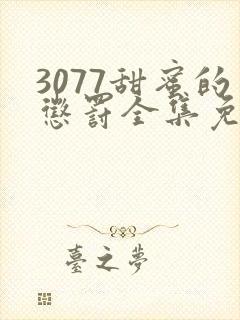 3077甜蜜的
惩罚全集免
臺之夢